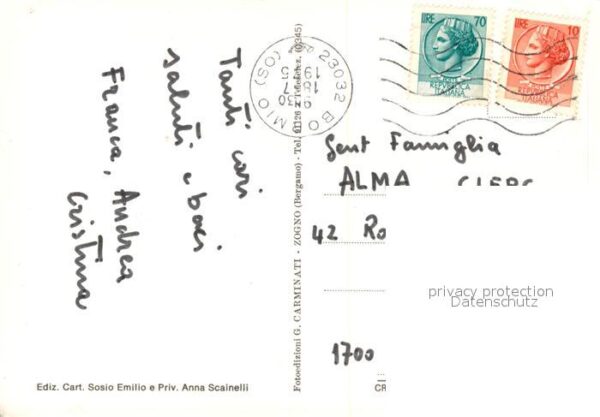 Tanti cari
saluti e baci
Franca, Andrea
Cristina
Ediz. Cart. Sosio Emilio e Priv. Anna Scainelli
Fotoedizioni G. CARMINATI - ZOGNO (Bergamo) - Tel. 91126 Teleselez. (0345)
23032 BORMIO (SO)
9.30
18.7
LIRE 70
REPUBBLICA
ITALIANA
LIRE 10
REPUBBLICA
ITALIANA
Gent Famiglia
ALMA
42 Ro
1700
privacy protection
Datenschutz
CR